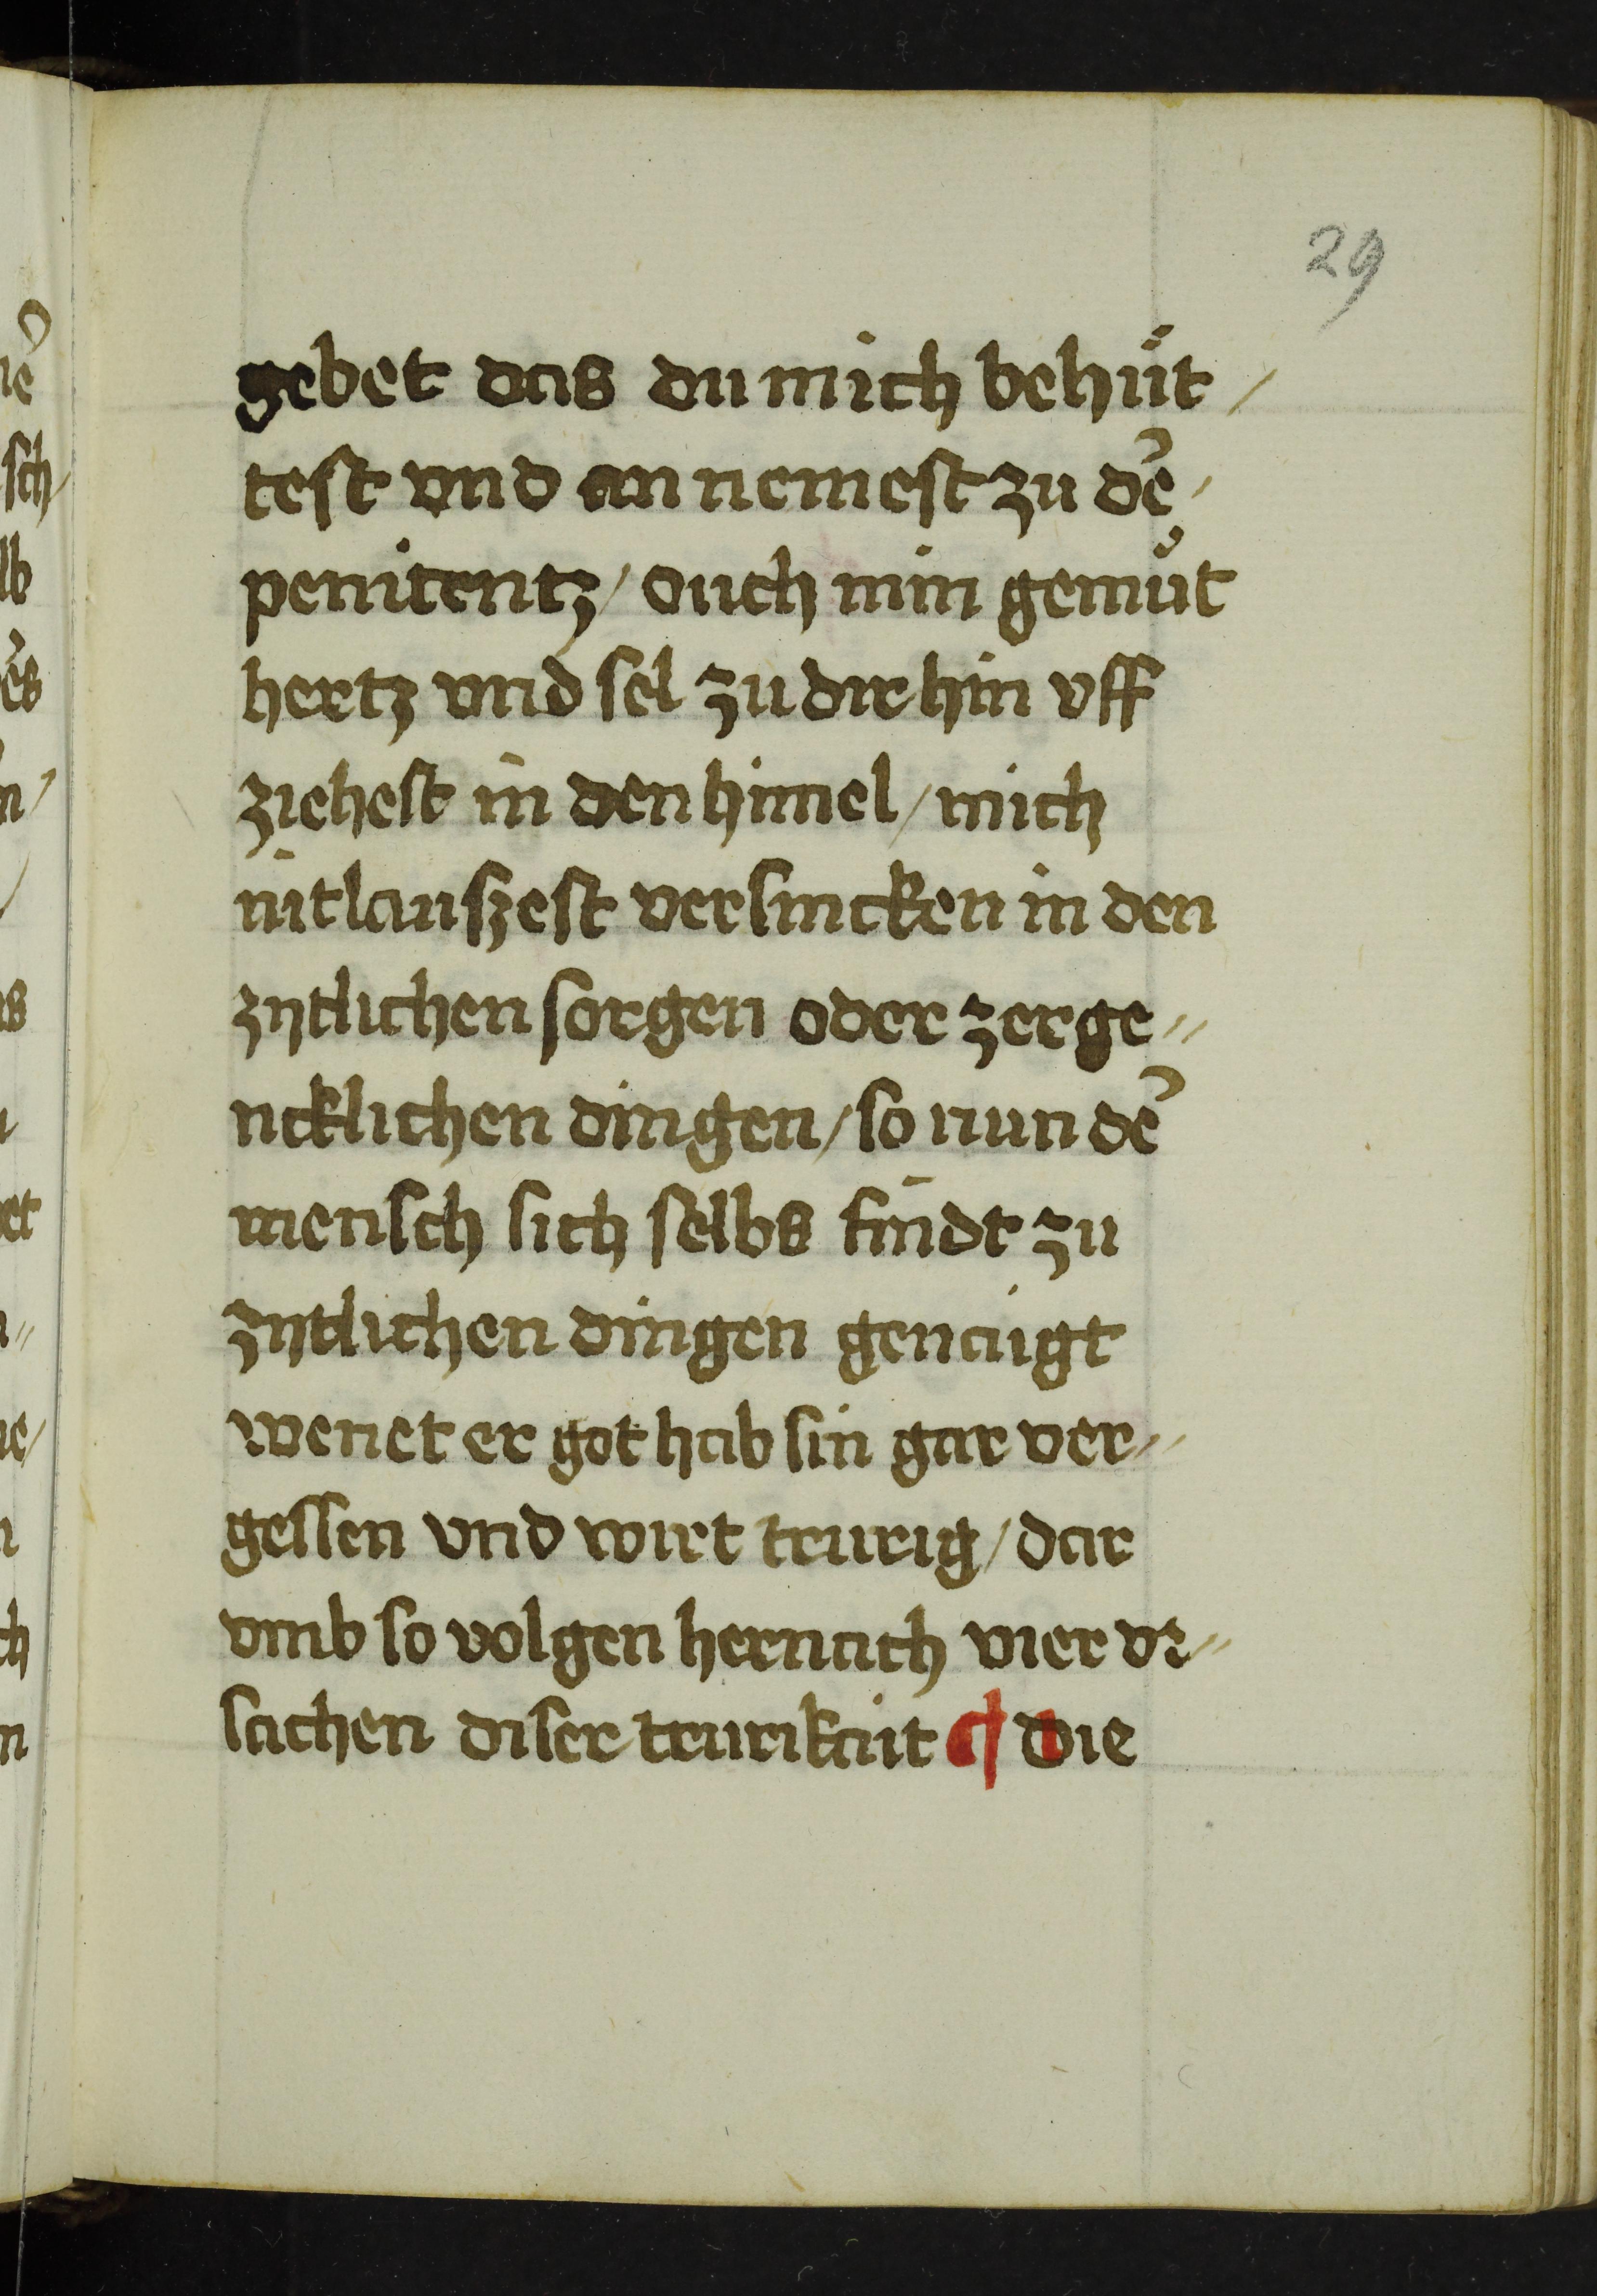 29
gebet das du mich behüt /
test vnd an nemest zu deᷣ /
penitentz / ouch min gemuͤt
hertz vnd sel zu dir hin vff
ziehest in den himel / mich
nit lauszest versincken in den
zytlichen sorgen oder zerge //
ncklichen dingen / so nun deᷣ
mensch sich selbs findt zu
zytlichen dingen genaigt
wenet er got hab sin gar ver //
gessen vnd wirt trurig / dar
vmb so volgen hernach vier vr //
sachen diser trurikait ¶ die